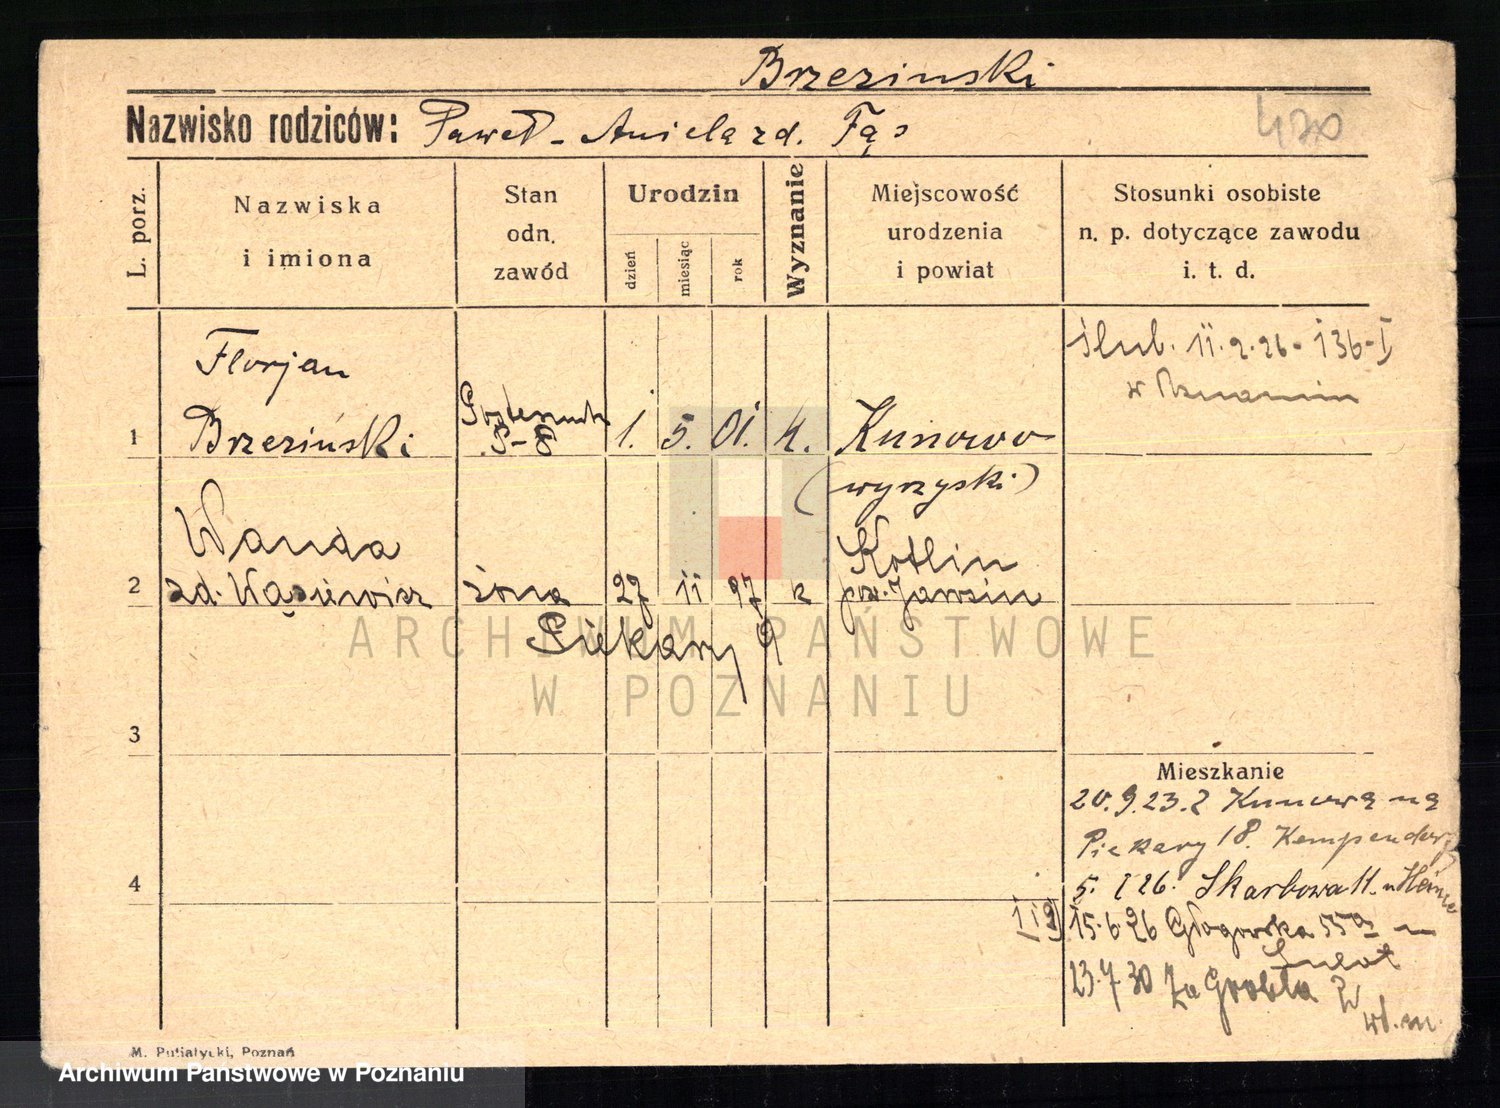 Brzezinski
Nazwisko rodziców: Paweł - Aniela zd. Fąs
420
L. porz.
Nazwiska
i imiona
Stan
odn.
zawód
Urodzin
dzień
miesiąc
rok
Wyznanie
Miejscowość
urodzenia
i powiat
Stosunki osobiste
n. p. dotyczące zawodu
i. t. d.
ślub. 11.2.26 - 136-I
w Poznaniu
Florjan
1 Brzeziński 1. 5. 01. k. Kunowo
(wyrzyski)
Wanda Kotlin
2 zd. żona 27 11 97 k pow. Jarocin
Piekary 9
3
4
Mieszkanie
20.9.23. z Kunowa na
Piekary 18.
5. I 26. Skarbowa 11.
15.6.26 Głogowska 55a
23.7.30 Za Groblą
wł. m.
M. Putiatycki, Poznań
ARCHIWUM PAŃSTWOWE
W POZNANIU
Archiwum Państwowe w Poznaniu